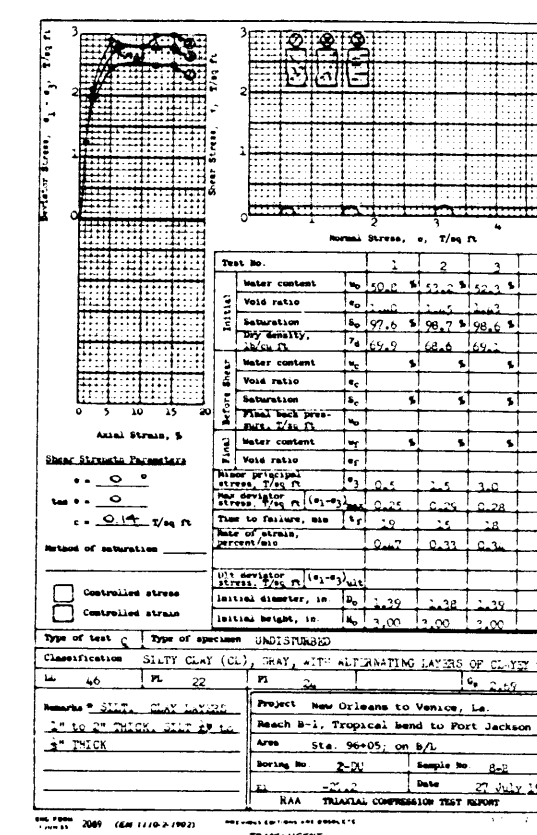 Deviator Stress, σ1 - σ3, T/sq ft
Shear Stress, τ, T/sq ft
3
2
1
0
0 5 10 15 20
Axial Strain, %
3
2
1
0
1 2 3 4
Normal Stress, σ, T/sq ft
Shear Strength Parameters
φ = 0 °
tan φ = 0
c = 0.14 T/sq ft
Method of saturation
Controlled stress
Controlled strain
Test No. 1 2 3
Initial
Water content wo 50.8 % 53.2 % 52.3 %
Void ratio eo
Saturation So 97.6 % 98.7 % 98.6 %
Dry density, lb/cu ft γd 69.9 68.6 69.1
Before Shear
Water content wc % % %
Void ratio ec
Saturation Sc % % %
Final back pressure, T/sq ft uo
Final
Water content wf % % %
Void ratio ef
Minor principal stress, T/sq ft σ3 0.5 1.5 3.0
Max deviator stress, T/sq ft (σ1-σ3)max 0.25 0.29 0.28
Time to failure, min tf 19 15 18
Rate of strain, percent/min 0.47 0.33 0.34
Ult deviator stress, T/sq ft (σ1-σ3)ult
Initial diameter, in. Do 1.39 1.38 1.39
Initial height, in. Ho 3.00 3.00 3.00
Type of test Q Type of specimen UNDISTURBED
Classification SILTY CLAY (CL), GRAY, WITH ALTERNATING LAYERS OF CLAYEY
LL 46 PL 22 PI 24 Gs 2.69
Remarks * SILT. CLAY LAYERS
1" to 2" THICK, SILT
THICK
Project New Orleans to Venice, La.
Reach B-1, Tropical bend to Fort Jackson
Area Sta. 96+05; on B/L
Boring No. 2-DU Sample No. 8-B
El Date 27 July
RAA TRIAXIAL COMPRESSION TEST REPORT
ENG FORM 2089 (EM 1110-2-1902) PREVIOUS EDITIONS ARE OBSOLETE
TRANSLUCENT